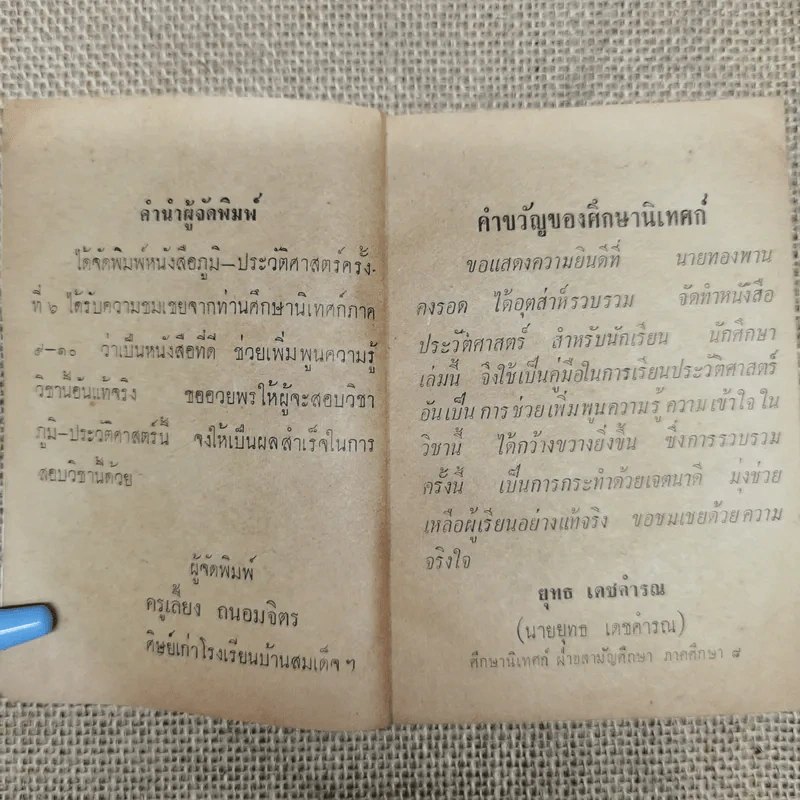 คำนำผู้จัดพิมพ์
ได้จัดพิมพ์หนังสือภูมิ—ประวัติศาสตร์ครั้ง-
ที่ ๖ ได้รับความชมเชยจากท่านศึกษานิเทศก์ภาค
๙—๑๐ ว่าเป็นหนังสือที่ดี ช่วยเพิ่มพูนความรู้
วิชานี้อันแท้จริง ขออวยพรให้ผู้จะสอบวิชา
ภูมิ-ประวัติศาสตร์นี้ จงให้เป็นผลสำเร็จในการ
สอบวิชานี้ด้วย
ผู้จัดพิมพ์
ครูเลี้ยง ถนอมจิตร
ศิษย์เก่าโรงเรียนบ้านสมเด็จ ฯ
คำขวัญของศึกษานิเทศก์
ขอแสดงความยินดีที่ นายทองพาน
คงรอด ได้อุตส่าห์รวบรวม จัดทำหนังสือ
ประวัติศาสตร์ สำหรับนักเรียน นักศึกษา
เล่มนี้ จึงใช้เป็นคู่มือในการเรียนประวัติศาสตร์
อันเป็น การ ช่วย เพิ่มพูนความรู้ ความ เข้าใจ ใน
วิชานี้ ได้กว้างขวางยิ่งขึ้น ซึ่งการรวบรวม
ครั้งนี้ เป็นการกระทำด้วยเจตนาดี มุ่งช่วย
เหลือผู้เรียนอย่างแท้จริง ขอชมเชยด้วยความ
จริงใจ
ยุทธ เดชคำรณ
(นายยุทธ เดชคำรณ)
ศึกษานิเทศก์ ฝ่ายสามัญศึกษา ภาคศึกษา ๘